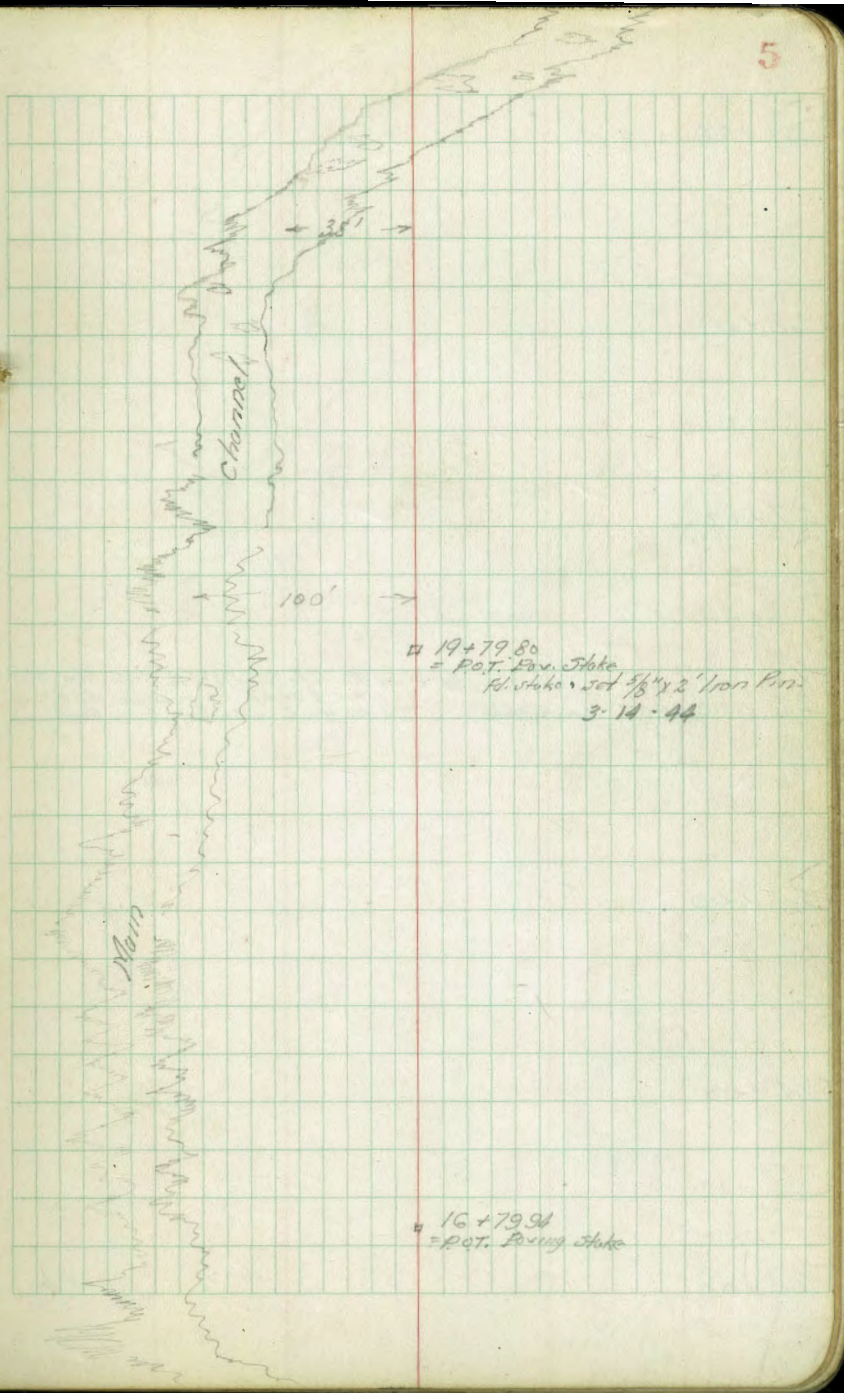 5
35'
Channel
100'
19+79.80
= P.O.T. Pav. Stake
Fd. stake, set 5/8" x 2' Iron Pin
3-14-44
Main
16+79.94
= P.O.T. Paving Stake